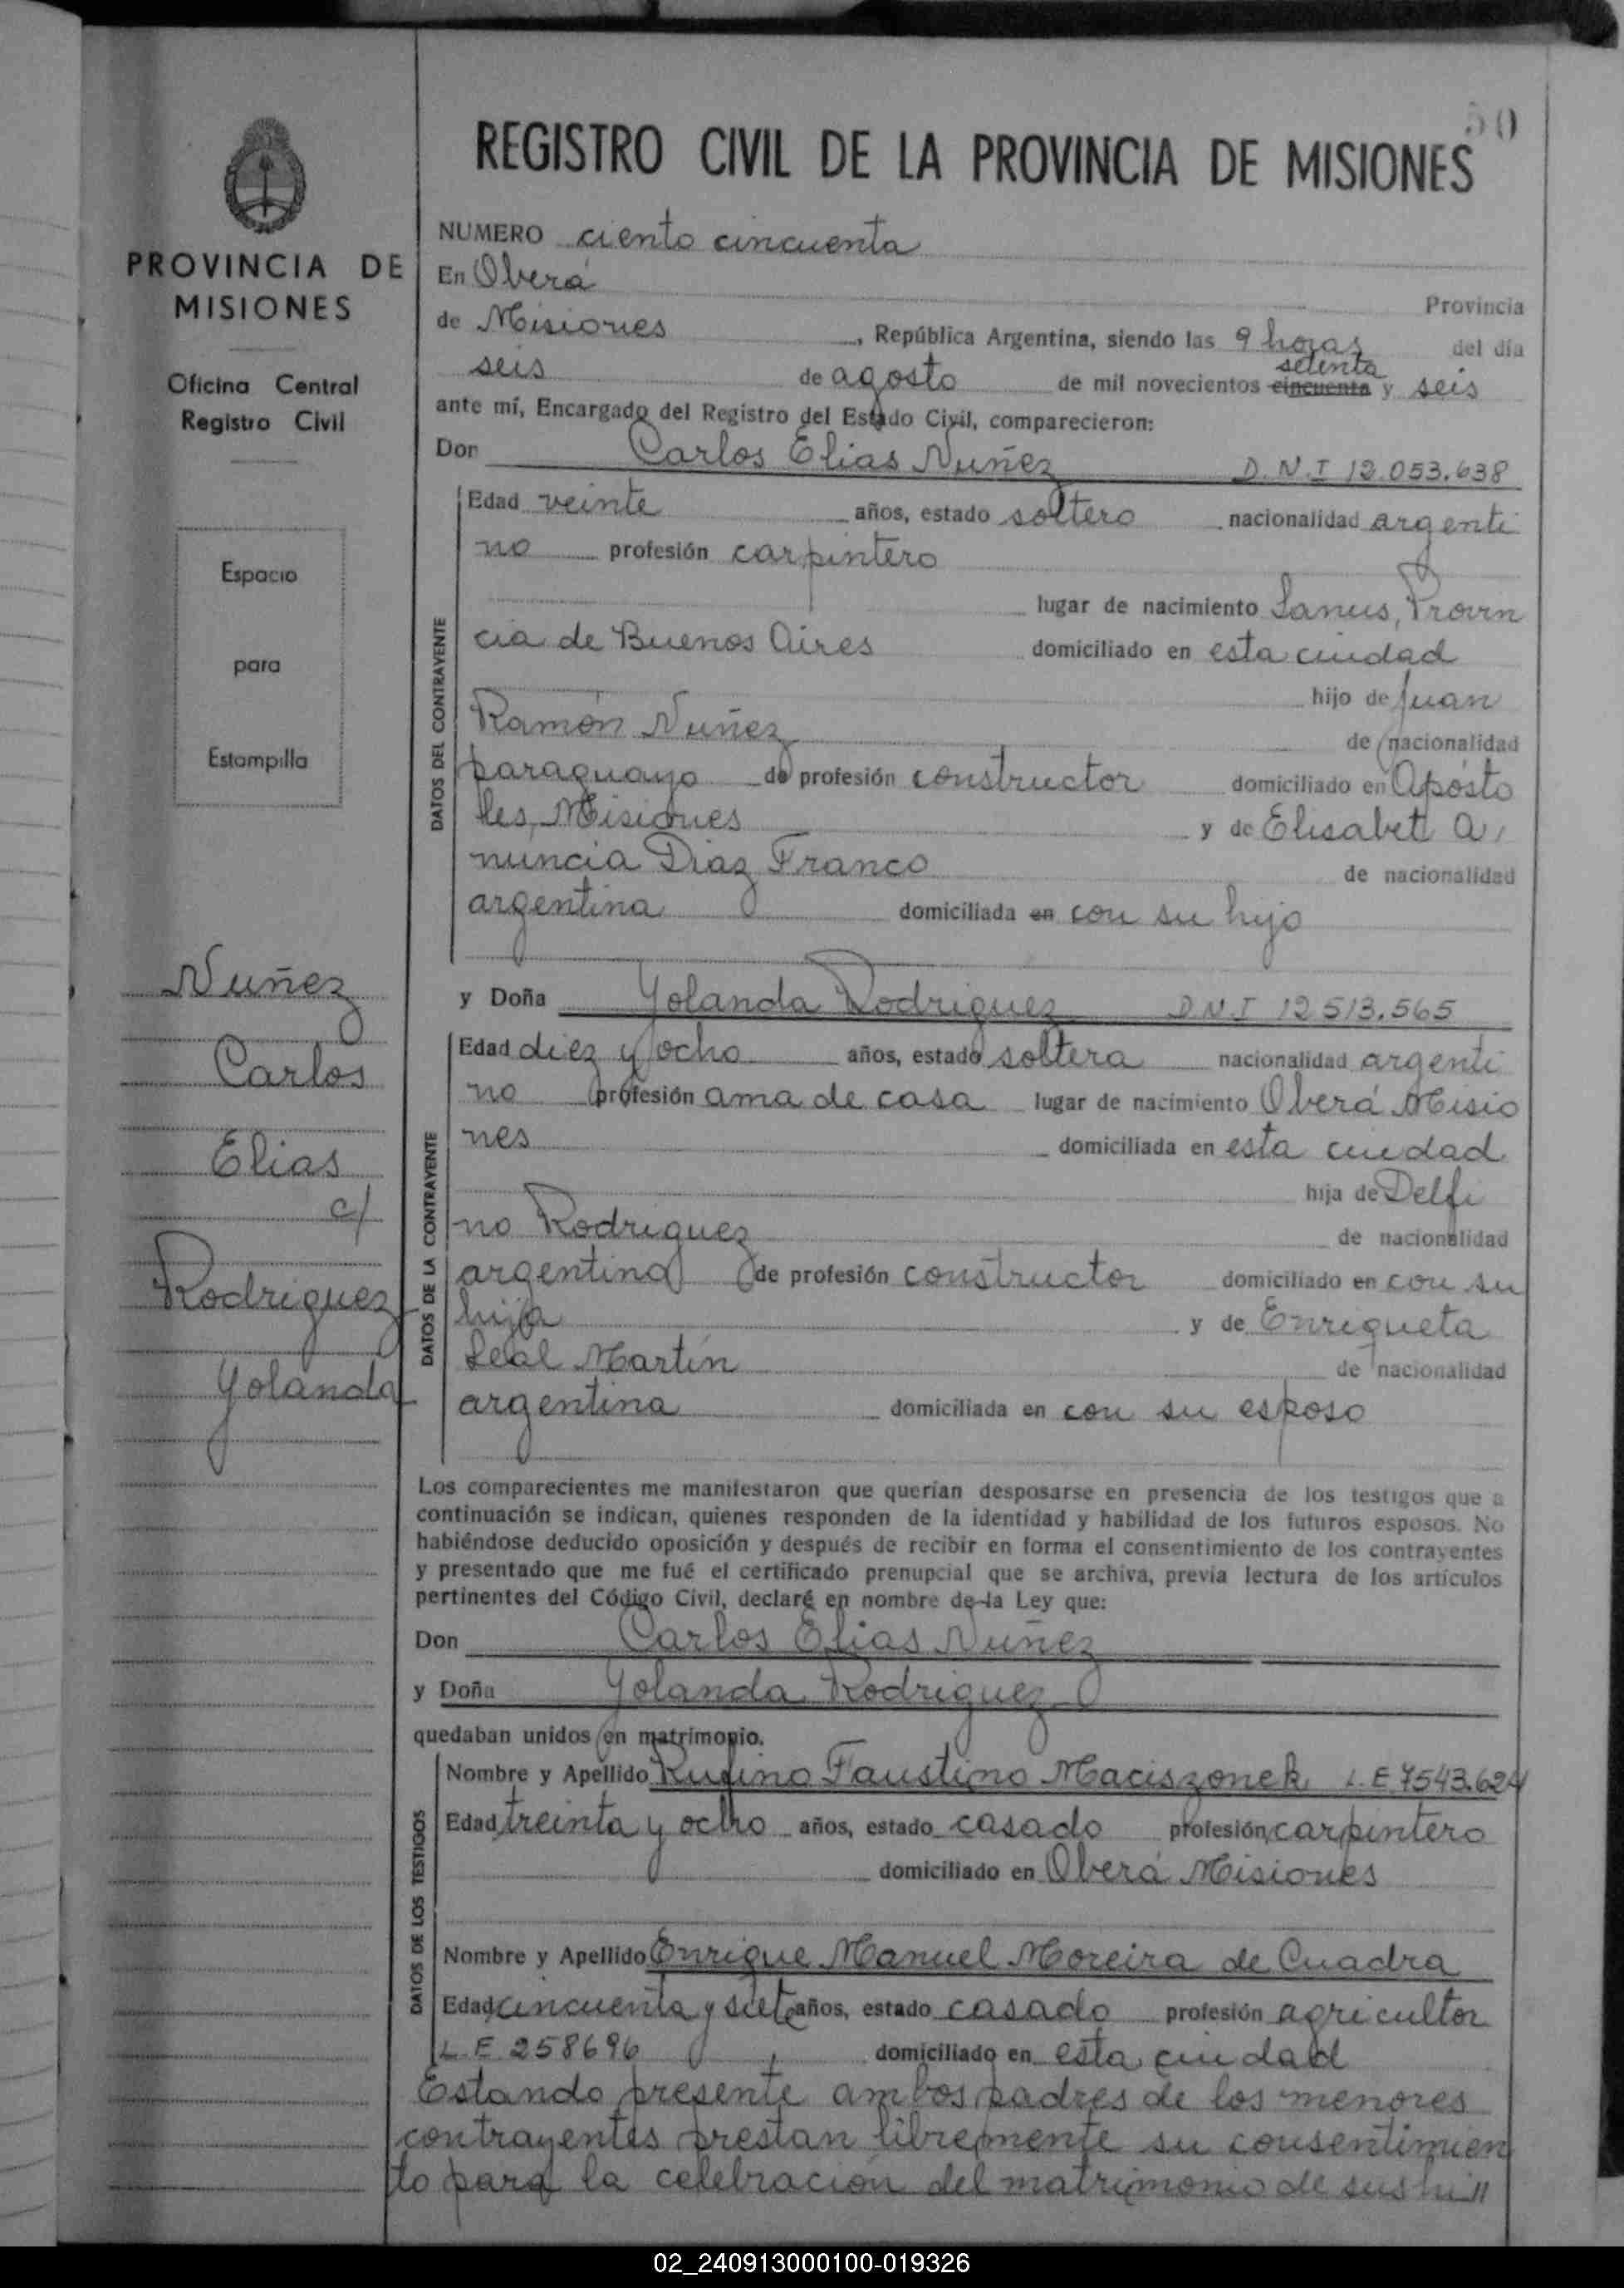 50
REGISTRO CIVIL DE LA PROVINCIA DE MISIONES
PROVINCIA DE
MISIONES
Oficina Central
Registro Civil
Espacio
para
Estampilla
Nuñez
Carlos
Elias
c/
Rodriguez
Yolanda
NUMERO ciento cincuenta
En Oberá Provincia
de Misiones, República Argentina, siendo las 9 horas del día
setenta
seis de agosto de mil novecientos cincuenta y seis
ante mí, Encargado del Registro del Estado Civil, comparecieron:
Don Carlos Elias Nuñez D.N.I 12.053.638
DATOS DEL CONTRAYENTE
Edad veinte años, estado soltero nacionalidad argenti
no profesión carpintero
lugar de nacimiento Lanus, Provin
cia de Buenos Aires domiciliado en esta ciudad
hijo de Juan
Ramón Nuñez de nacionalidad
paraguayo de profesión constructor domiciliado en Apósto
les, Misiones y de Elisabet A,
nuncia Diaz Franco de nacionalidad
argentina domiciliada en con su hijo
y Doña Yolanda Rodriguez D.N.I 12513.565
DATOS DE LA CONTRAYENTE
Edad diez y ocho años, estado soltera nacionalidad argenti
no profesión ama de casa lugar de nacimiento Oberá Misio
nes domiciliada en esta ciudad
hija de Delfi
no Rodriguez de nacionalidad
argentina de profesión constructor domiciliado en con su
hija y de Enriqueta
Leal Martín de nacionalidad
argentina domiciliada en con su esposo
Los comparecientes me manifestaron que querían desposarse en presencia de los testigos que a
continuación se indican, quienes responden de la identidad y habilidad de los futuros esposos. No
habiéndose deducido oposición y después de recibir en forma el consentimiento de los contrayentes
y presentado que me fué el certificado prenupcial que se archiva, previa lectura de los artículos
pertinentes del Código Civil, declaré en nombre de la Ley que:
Don Carlos Elias Nuñez
y Doña Yolanda Rodriguez
quedaban unidos en matrimonio.
DATOS DE LOS TESTIGOS
Nombre y Apellido Rufino Faustino Maciszonek L.E 7543.624
Edad treinta y ocho años, estado casado profesión carpintero
domiciliado en Oberá Misiones
Nombre y Apellido Enrique Manuel Moreira de Cuadra
Edad cincuenta y siete años, estado casado profesión agricultor
L.E 258696 domiciliado en esta ciudad
Estando presente ambos padres de los menores
contrayentes prestan libremente su consentimien
to para la celebración del matrimonio de sus hi//
02_240913000100-019326